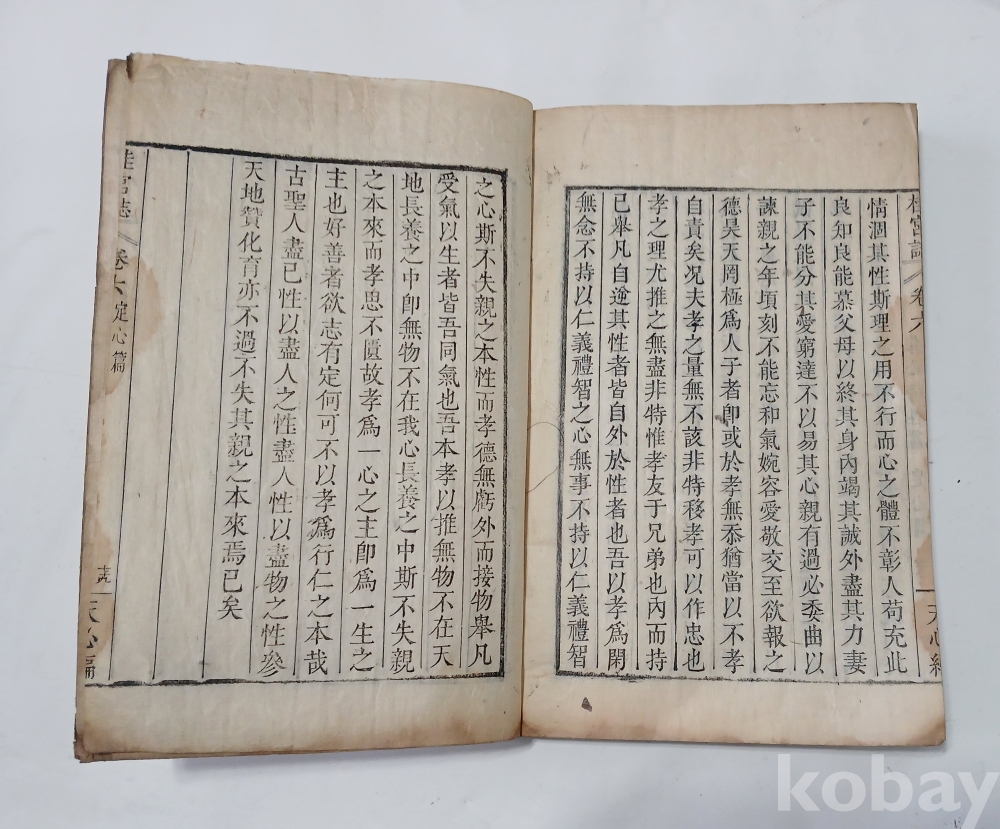 桂宮誌 卷六 天心編
情涸其性斯理之用不行而心之體不彰人苟充此
良知良能慕父母以終其身內竭其誠外盡其力妻
子不能分其愛窮達不以易其心親有過必委曲以
諫親之年頃刻不能忘和氣婉容愛敬交至欲報之
德昊天罔極爲人子者卽或於孝無忝猶當以不孝
自責矣况夫孝之量無不該非特移孝可以作忠也
孝之理尤推之無盡非特惟孝友于兄弟也內而持
已舉凡自逾其性者皆自外於性者也吾以孝爲閑
無念不持以仁義禮智之心無事不持以仁義禮智
之心斯不失親之本性而孝德無虧外而接物舉凡
受氣以生者皆吾同氣也吾本孝以推無物不在天
地長養之中卽無物不在我心長養之中斯不失親
之本來而孝思不匱故孝爲一心之主卽爲一生之
主也好善者欲志有定何可不以孝爲行仁之本哉
古聖人盡己性以盡人之性盡人性以盡物之性參
天地贊化育亦不過不失其親之本來焉已矣
桂宮誌 卷六 定心篇 天心編
kobay